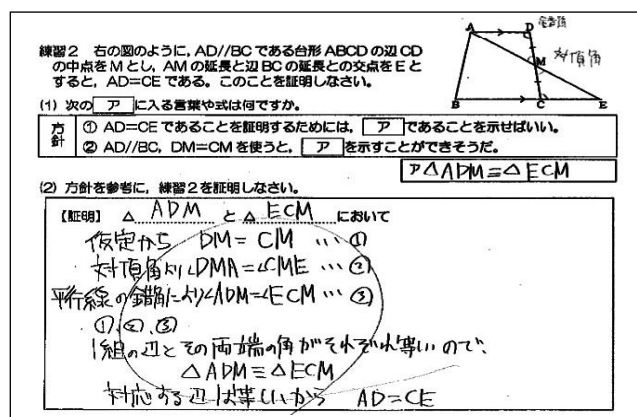 練習2 右の図のように,AD//BCである台形ABCDの辺CD
の中点をMとし,AMの延長と辺BCの延長との交点をEと
すると,AD=CEである。このことを証明しなさい。
A D 錯角
M 対頂角
B C E
(1) 次の ア に入る言葉や式は何ですか。
方針
① AD=CEであることを証明するためには, ア であることを示せばいい。
② AD//BC,DM=CMを使うと, ア を示すことができそうだ。
ア△ADM≡△ECM
(2) 方針を参考に,練習2を証明しなさい。
【証明】 △ ADM と△ ECM において
仮定から DM=CM … ①
対頂角より∠DMA=∠CME … ②
平行線の錯角により∠ADM=∠ECM … ③
①,②,③
1組の辺とその両端の角がそれぞれ等しいので、
△ADM≡△ECM
対応する辺は等しいから AD=CE